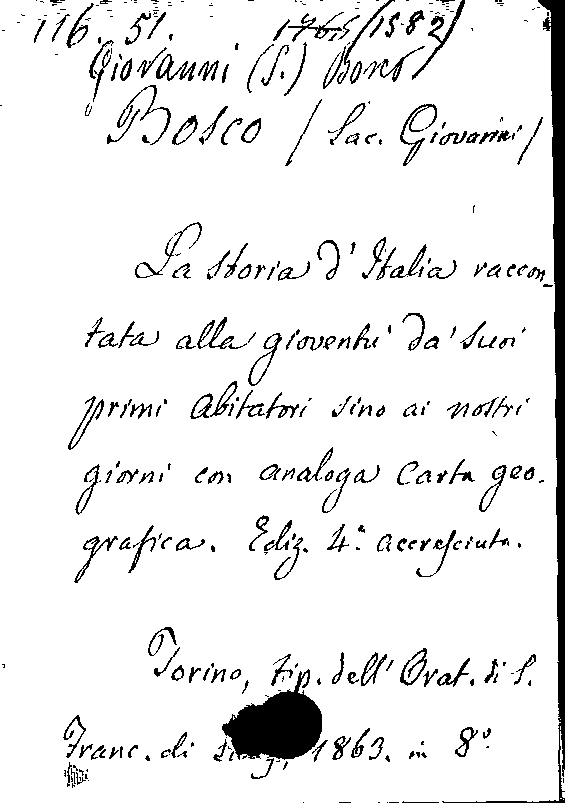 116. 51. 1765 (1582)
Giovanni (S.) Bosco
Bosco / Sac. Giovanni /
La storia d' Italia raccon-
tata alla gioventù da' suoi
primi abitatori sino ai nostri
giorni con analoga carta geo-
grafica. Ediz. 4.ª accresciuta.
Torino, tip. dell' Orat. di S.
Franc. di 1863. in 8.º